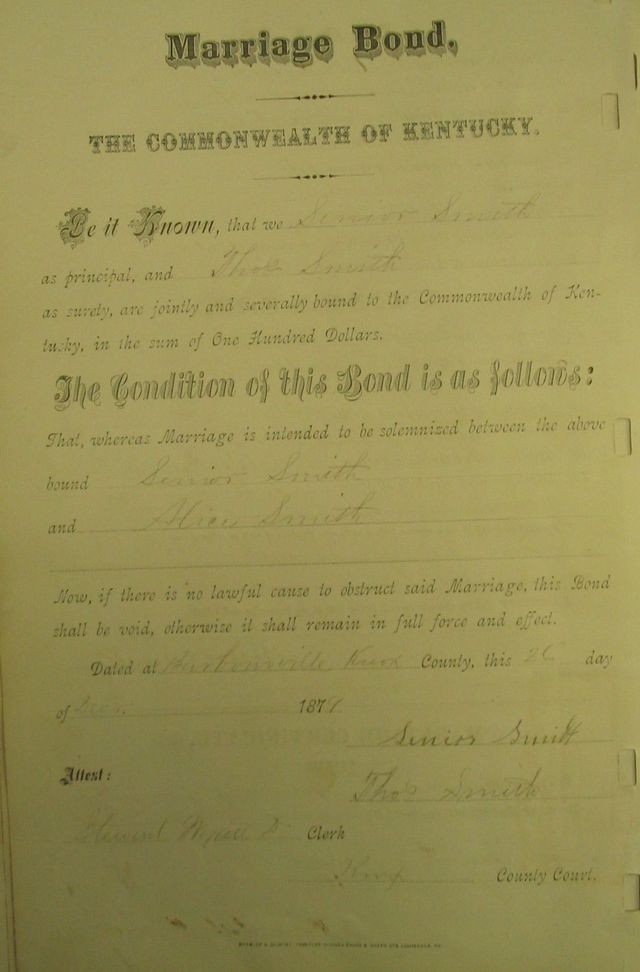 Marriage Bond.
THE COMMONWEALTH OF KENTUCKY.
Be it Known, that we Senior Smith
as principal, and Thos Smith
as surety, are jointly and severally bound to the Commonwealth of Ken-
tucky, in the sum of One Hundred Dollars.
The Condition of this Bond is as follows:
That, whereas Marriage is intended to be solemnized between the above
bound Senior Smith
and Alice Smith
Now, if there is no lawful cause to obstruct said Marriage, this Bond
shall be void, otherwise it shall remain in full force and effect.
Dated at Barbourville Knox County, this day
of Decr. 187
Senior Smith
Attest:
Thos Smith
Clerk
Knox County Court.